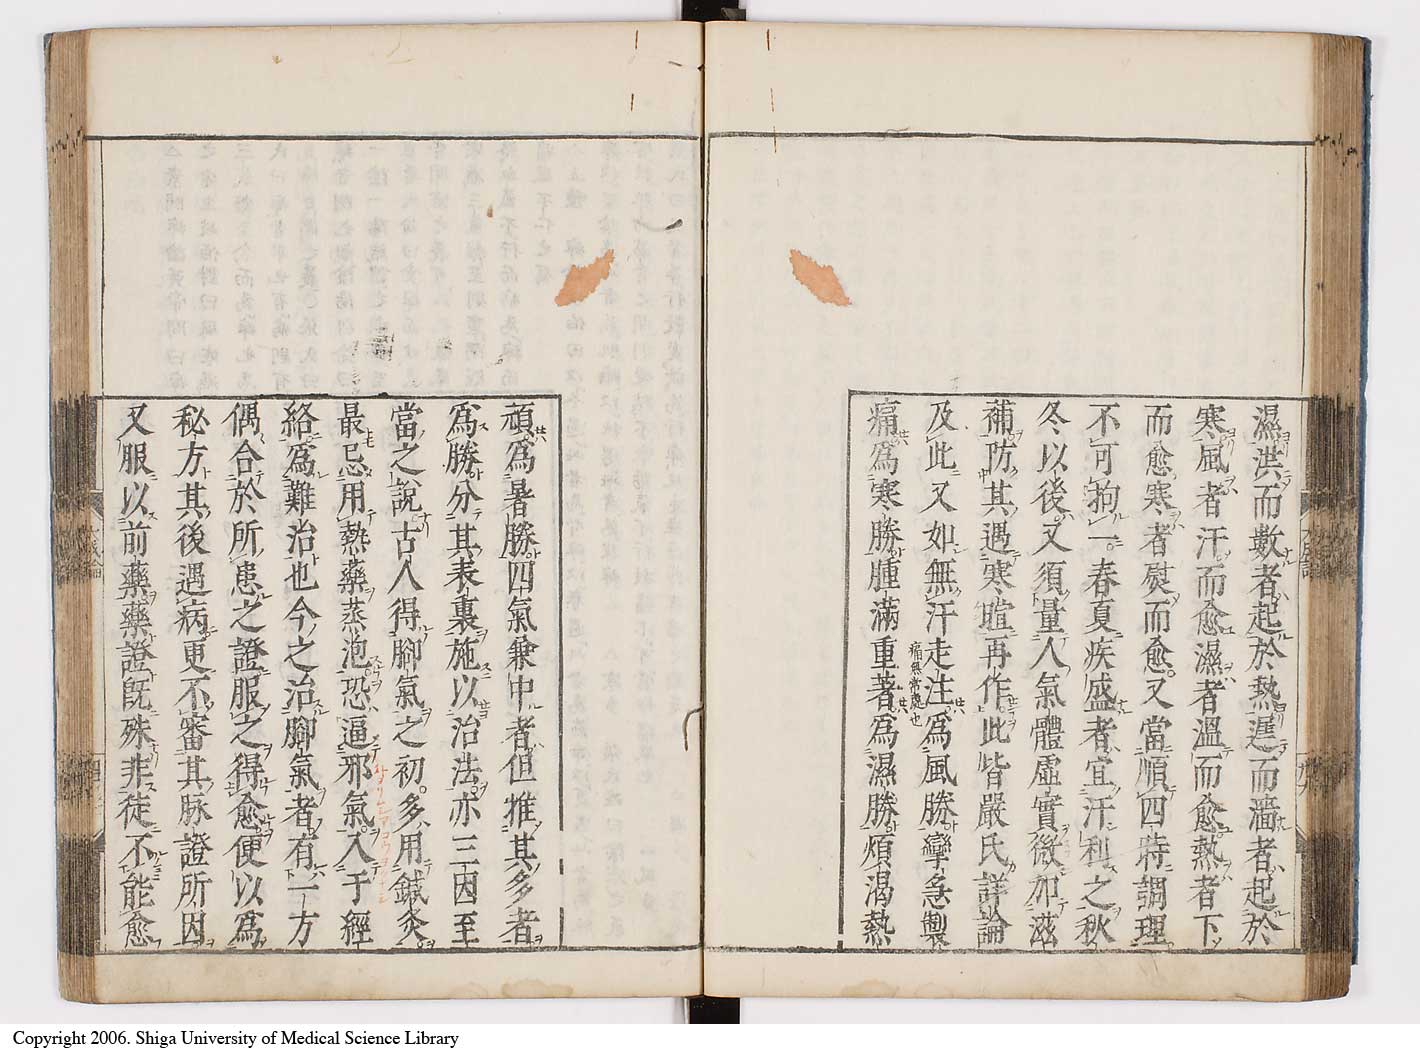 濕洪而數者起於熱遲而濇者起於
寒風者汗而愈濕者溫而愈熱者下
而愈寒者熨而愈又當順四時調理
不可拘一春夏疾盛者宜汗利之秋
冬以後又須量人氣體虛實微加滋
補防其遇寒暄再作此皆嚴氏詳論
及此又如無汗走注爲風勝攣急製
痛無常處也
痛爲寒勝腫滿重著爲濕勝煩渴熱
頑爲暑勝四氣兼中者但推其多者
爲勝分其表裏施以治法亦三因至
當之說古人得腳氣之初多用鍼灸
最忌用熱藥蒸泡恐逼邪氣入于經
絡爲難治也今之治腳氣者有一方
偶合於所患之證服之得愈便以爲
秘方其後遇病更不審其脉證所因
又服以前藥藥證既殊非徒不能愈
Copyright 2006. Shiga University of Medical Science Library